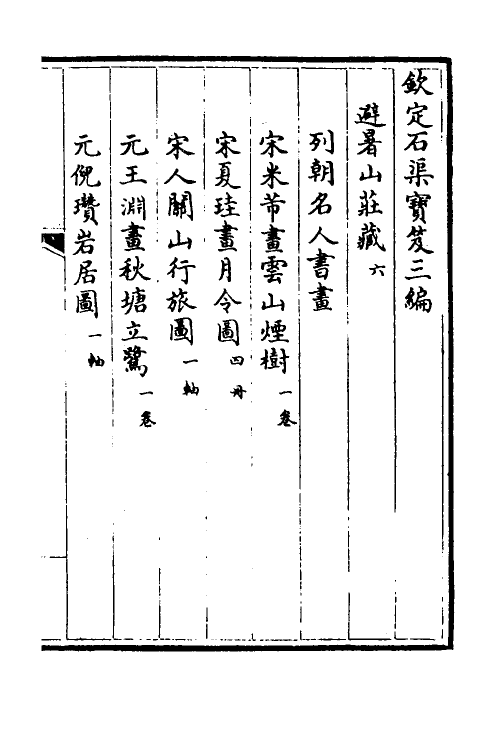 欽定石渠寶笈三編
避暑山莊藏六
列朝名人書畫
宋米芾畫雲山煙樹一卷
宋夏珪畫月令圖四冊
宋人關山行旅圖一軸
元王淵畫秋塘立鷺一卷
元倪瓚岩居圖一軸